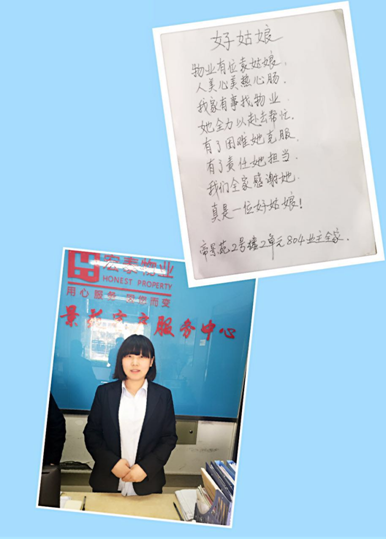 好姑娘
物业有位袁姑娘,
人美心美热心肠.
我家有事找物业.
她全力以赴去帮忙.
有了困难她克服.
有了责任她担当.
我们全家感谢她.
真是一位好姑娘!
帝景苑2号楼2单元804业主全家.
宏泰物业
HONEST PROPERTY
用心服务 为您而变
服务中心